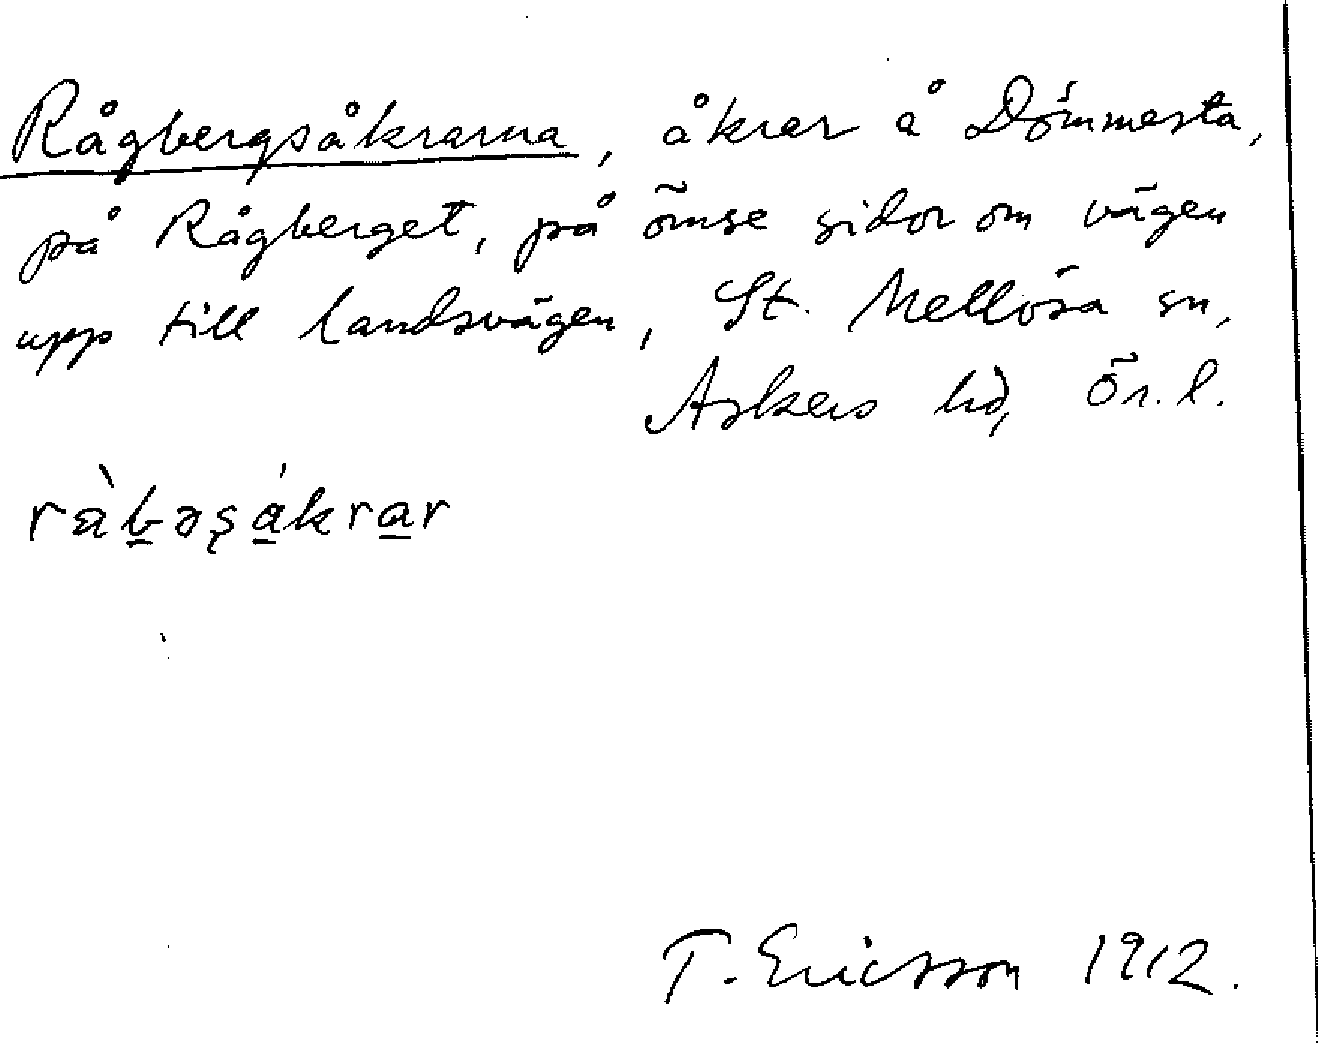 Rågbergsåkrarna, åkrar å Dömmesta,
på Rågberget, på ömse sidor om vägen
upp till landsvägen, St. Mellösa sn,
Askers hd, Ör. l.
ràbəsákrar
T. Ericsson 1912.